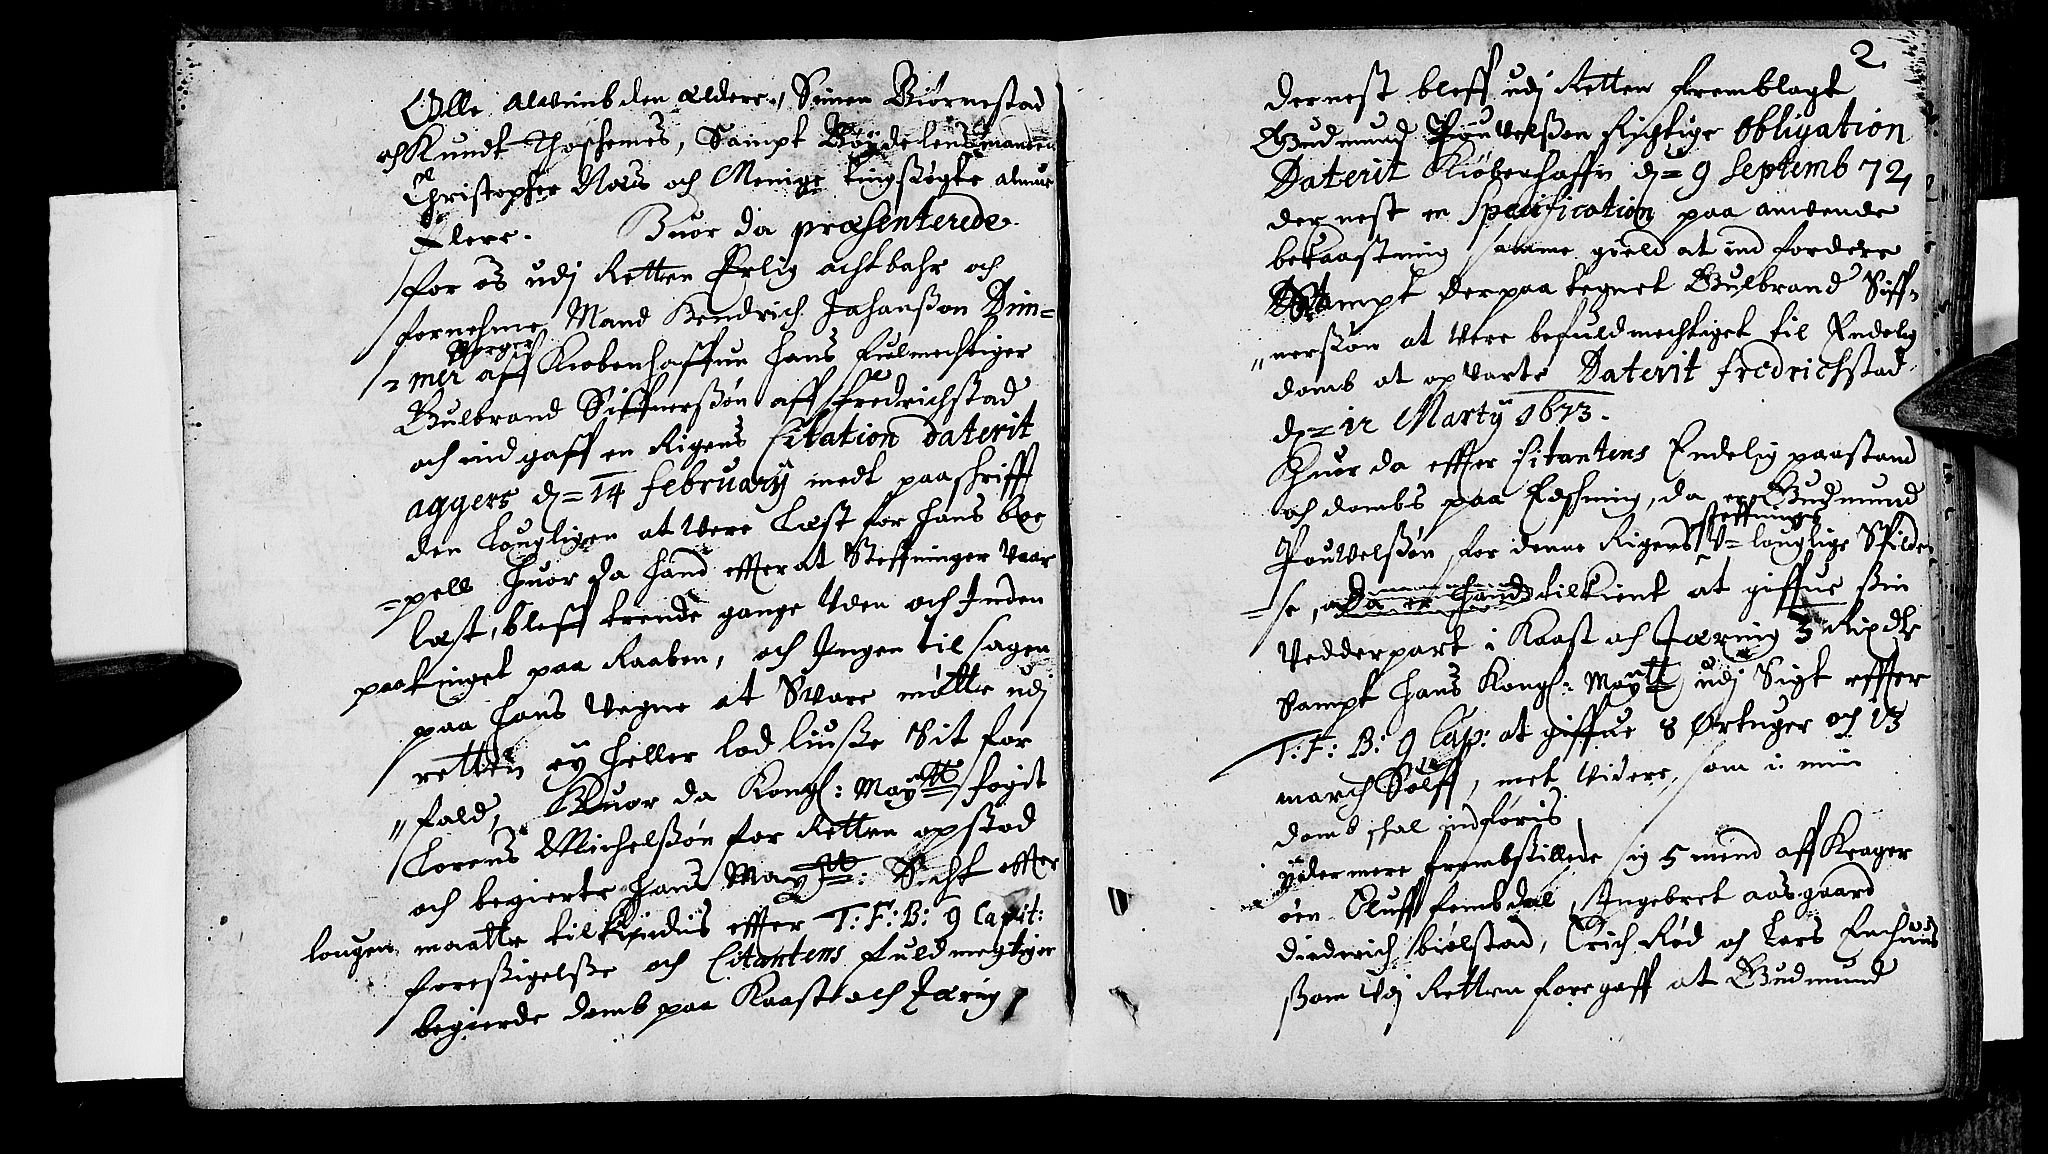 Olle Alewinb den ældere, Simen Biørnestad
och Knudt Thoschemes, Sampt Bøyde lensmanden
Christopher Røds och Menige tingsøgte almue
flere. Huor da præsenterede
for os udj Retten Erlig achtbahr och
fornehme Mand Hendrich Johanßøn Dim=
= mer Borger aff Kiøbenhaffuen hans fulmechtiger
Gulbrand Siffuerßøn aff Fredrichstad
och ind gaff en Rigens Citation daterit
aggers d= 14 february medt paaschrifft
den louglligen at Vere Læst for hans boe
=pell huor da hand effter at Steffninger Vaar
læst, bleff trende gange Uden och Inden
paa tinget paa Raaben, och Ingen til sagen
paa hans Vegne at Svare møtte udj
retten ey heller lod liuße Sit for
"fald, Huor da Kongl: Maytt fogit
Lorens Michelßøn for Retten opstod
och begierte hans Maytt: Sicht effter
lougen maatte tilkiendis effter T: F: B: 9 Capit:
foresigelße och Citantens fuldmegtiger
begierde domb paa Kaast och tæring
2
dernest bleff udj Retten fremblagt
Gudmund Pouvelßøn Rigtige Obligation
Daterit Kiøbenhaffn d= 9 Septemb 72,
dernest en Specification paa anvende
bekaastning samme gield at ind fordere
Sampt derpaa tegnet Gulbrand Siff=
"uerßøn at Vere befuldmechtiget til Endelig
domb at opvarte Daterit fredrichstad
d= 12 Marty 1673.
Huor da effter Citantens Endelig paastand
och dombs paa Eschning, da er Gudmund
Pouvelßøn for denne Rigens steffnings V= louglige Spilder
= se, da er hand tilkient at giffue sin
Vedderpart i Kaast och Tæring 3 Rixdlr
Sampt hans Kongl: Maytt udj Sigt effter
T: F: B: 9 Cap: at giffue 8 Ørtuger och 13
march Sølff, met Videre, som i min
domb schal indføris
ydermere frembstillede sig 5 mend aff Krager
øen Oluff fembdal, Ingebret aasgaard
diederich bielstad, Erich Rød och Lars Enhuus
ßom Udj Retten foregaff at Gudmund